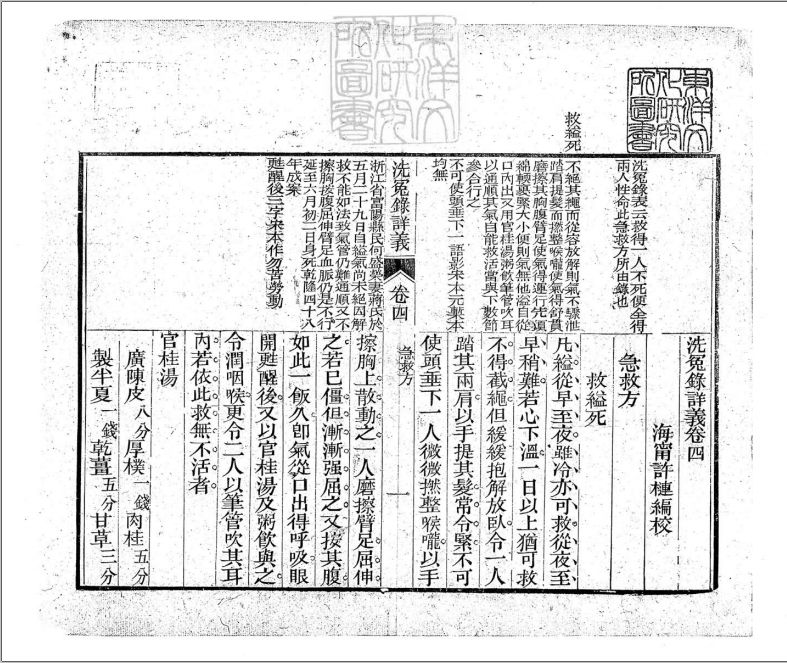 東洋文
化研究
所圖書
東洋文
化研究
所圖書
救縊死
洗冤錄表云救得一人不死便全得
兩人性命此急救方所由錄也
不絕其繩而從容放解則氣不驟泄
踏肩提髮而撚整喉嚨使氣得舒貫
磨擦其胸腹臂足使氣得運行尤須
綿輭裹緊大小便則氣無他溢自從
口內出又用官桂湯粥飲筆管吹耳
以通順其氣自能救活當與下數節
參合行之
不可使頭垂下一語宋本元槧本
均無
洗冤錄詳義卷四
海甯許槤編校
急救方
救縊死
凡縊從早至夜雖冷亦可救從夜至
早稍難若心下溫一日以上猶可救
不得截繩但緩緩抱解放臥令一人
踏其兩肩以手提其髮常令緊不可
使頭垂下一人微微撚整喉嚨以手
洗冤錄詳義
卷四
急救方
一
浙江省富陽縣民何盛美妻蔣氏於
五月二十九日自縊氣尚未絕因解
救不能如法致氣管仍難通順又不
擦胸按腹屈伸臂足血脈仍是不行
延至六月初二日身死乾隆四十八
年成案
甦醒後三字宋本作勿苦勞動
擦胸上散動之一人磨擦臂足屈伸
之若已僵但漸漸强屈之又按其腹
如此一飯久卽氣從口出得呼吸眼
開甦醒後又以官桂湯及粥飲與之
令潤咽喉更令二人以筆管吹其耳
內若依此救無不活者
官桂湯
廣陳皮八分厚樸一錢肉桂五分
製半夏一錢乾薑五分甘草三分